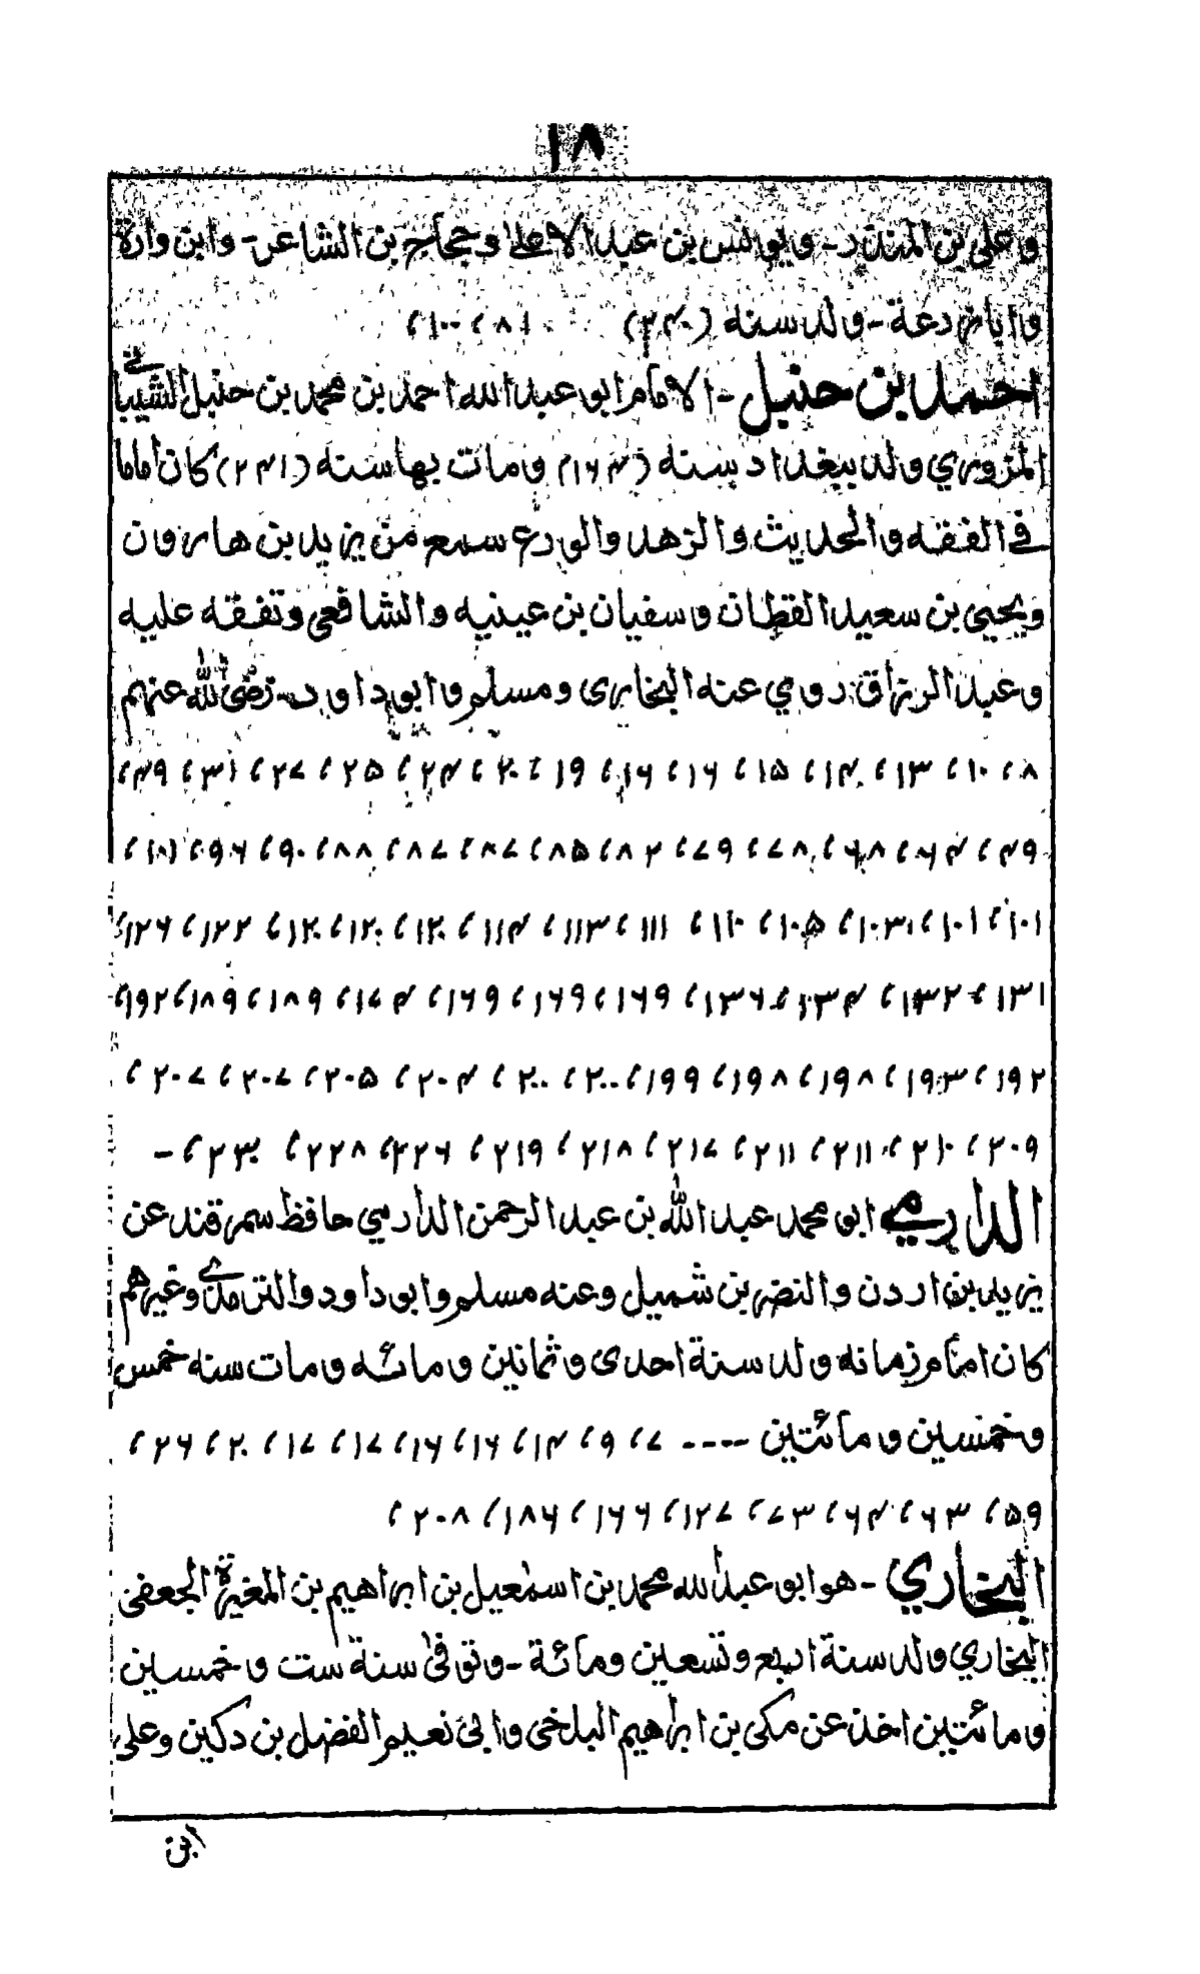 ١٨
وعلى بن المنذر- ويونس بن عبد الاعلى وحجاج بن الشاعر- وابن وارة
وابا زرعة- ولد سنه (٢٤٠) ٨١، ١٠٠،
احمد بن حنبل- الامام ابو عبد الله احمد بن محمد بن حنبل الشيبانى
المروزي ولد ببغداد سنه (١٦٤) ومات بها سنه (٢٤١) كان اماما
فى الفقه والحديث والزهد والورع سمع من يزيد بن هارون
ويحيى بن سعيد القطان وسفيان بن عينيه والشافعى وتفقه عليه
وعبد الرزاق روي عنه البخارى ومسلم وابو داود- رضى الله عنهم
٨، ١٠، ١٣، ١٤، ١٥، ١٦، ١٦، ١٩، ٢٠، ٢٤، ٢٥، ٢٧، ٣١، ٤٩،
٤٩، ٦٤، ٦٨، ٧٨، ٧٩، ٨٢، ٨٥، ٨٧، ٨٧، ٨٨، ٩٠، ٩٦، ١٠١،
١٠١، ١٠١، ١٠٣، ١٠٥، ١١٠، ١١١، ١١٣، ١١٤، ١٢٠، ١٢٠، ١٢٠، ١٢٢، ١٢٦،
١٣١، ١٣٢، ١٣٤، ١٣٦، ١٦٩، ١٦٩، ١٦٩، ١٧٤، ١٨٩، ١٨٩، ١٩٢،
١٩٢، ١٩٣، ١٩٨، ١٩٨، ١٩٩، ٢٠٠، ٢٠٠، ٢٠٤، ٢٠٥، ٢٠٧، ٢٠٧،
٢٠٩، ٢١٠، ٢١١، ٢١١، ٢١٧، ٢١٨، ٢١٩، ٢٢٦، ٢٢٨، ٢٣٠، -
الدارمي ابو محمد عبد الله بن عبد الرحمن الدارمي حافظ سمرقند عن
يزيد بن اردن والنضر بن شميل وعنه مسلم وابو داود والترمذي وغيرهم
كان امام زمانه ولد سنة احدى وثمانين ومائه ومات سنه خمس
وخمسين ومائتين ---- ٧، ٩، ١٤، ١٦، ١٦، ١٧، ١٧، ٢٠، ٢٦،
٥٩، ٦٣، ٦٤، ٧٣، ١٢٧، ١٦٦، ١٨٦، ٢٠٨،
البخاري- هو ابو عبد الله محمد بن اسمعيل بن ابراهيم بن المغيرة الجعفى
البخاري ولد سنة اربع وتسعين ومائة- وتوفى سنة ست وخمسين
ومائتين اخذ عن مكى بن ابراهيم البلخى وابى نعيم الفضل بن دكين وعلى
ابن